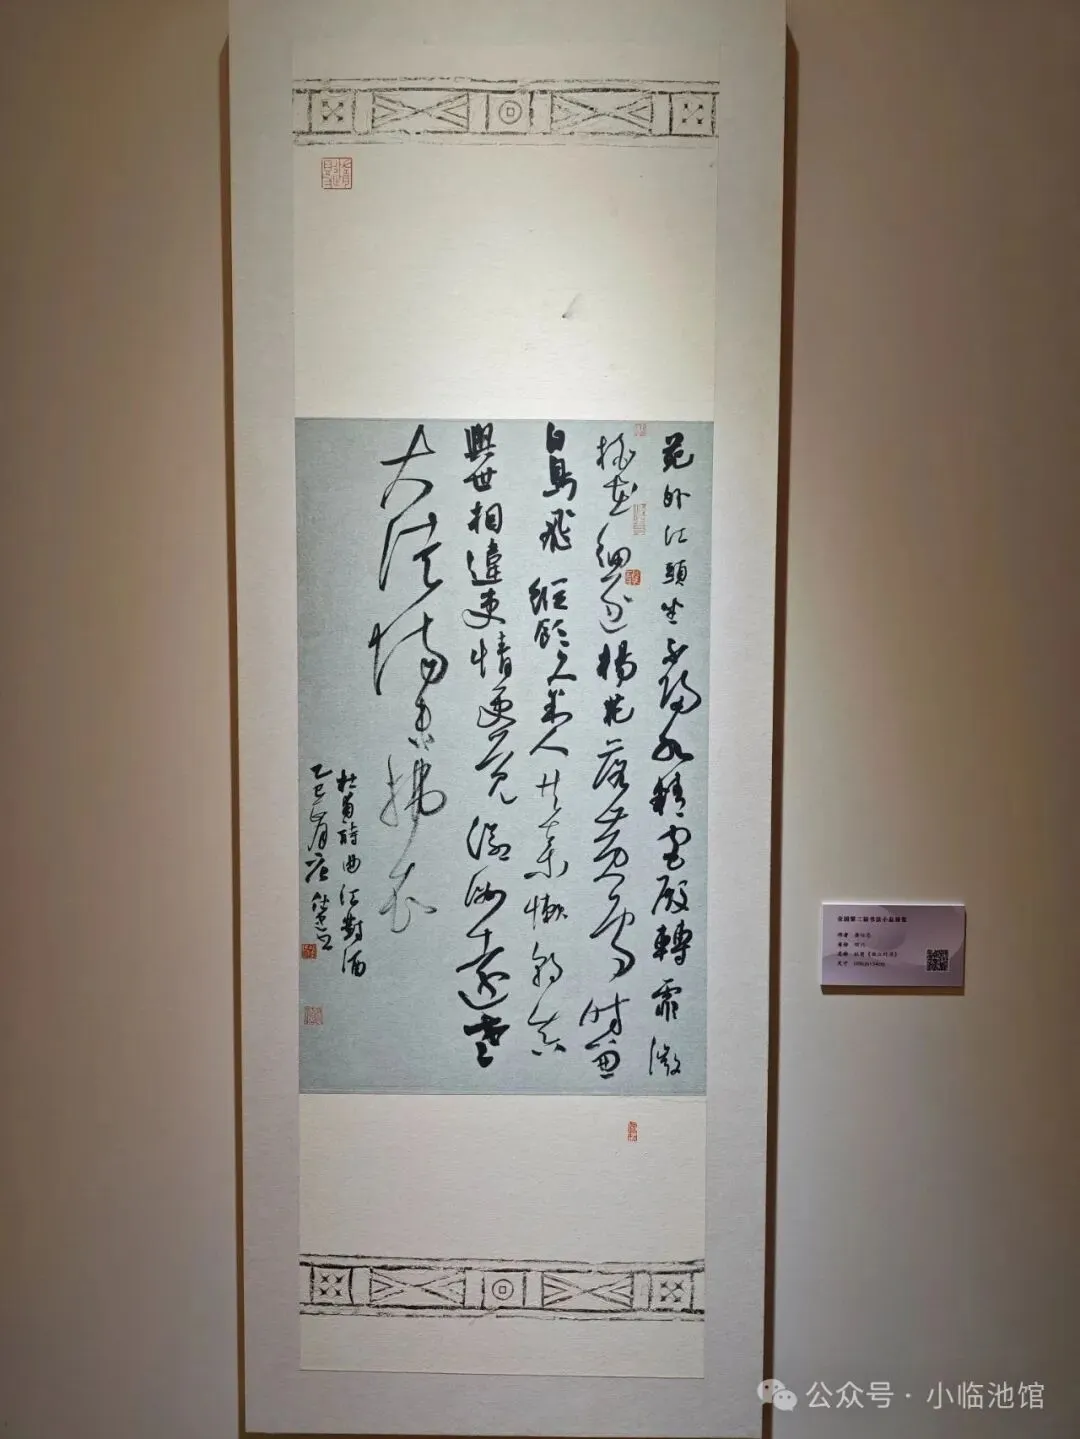 苑外江頭坐不歸水精宮殿轉霏微
桃花細逐楊花落黃鳥時兼
白鳥飛縱飲久判人共棄懶朝真
與世相違吏情更覺滄洲遠老
大徒傷未拂衣
杜甫詩曲江對酒
乙巳
作者
省份 四川
名称 杜甫《曲江对酒》
尺寸
公众号·小临池馆